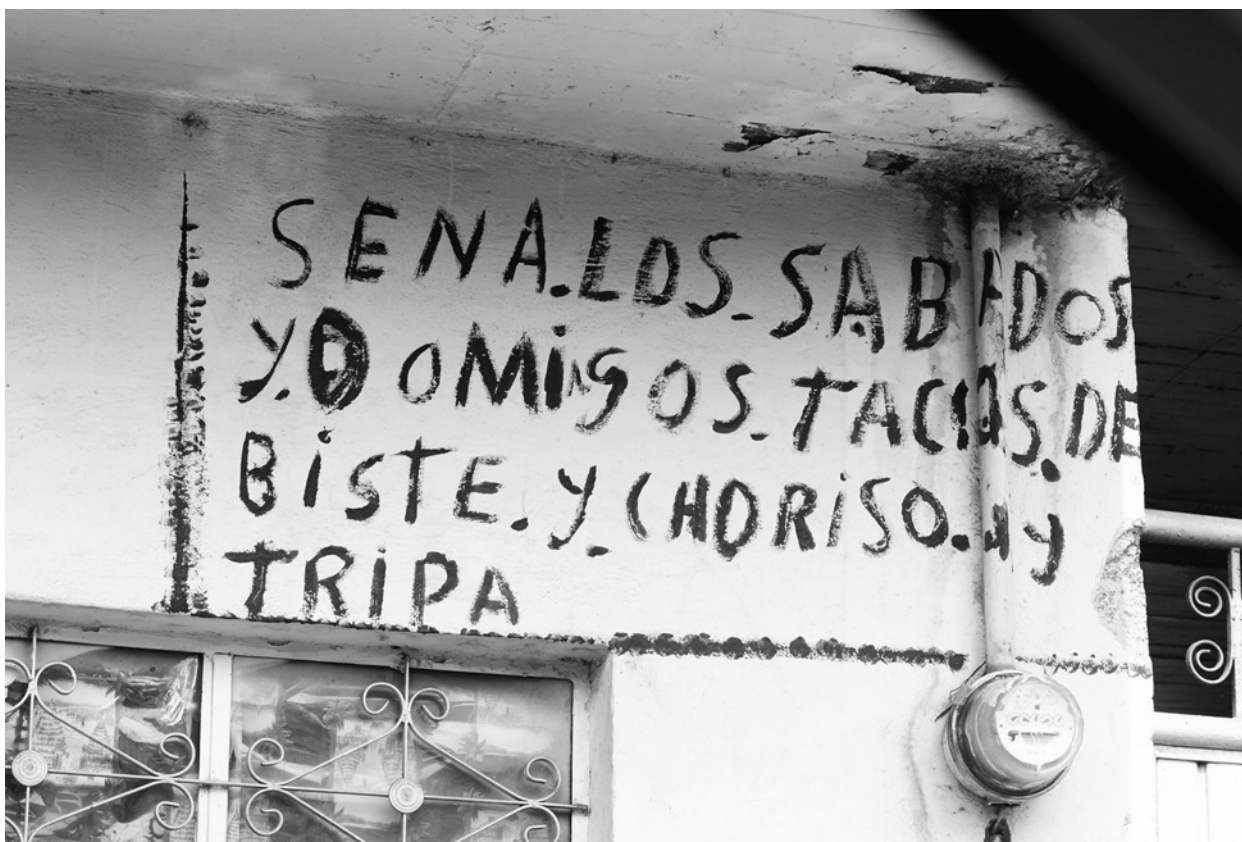 SENA.LOS.SABADOS
Y.DOMIGOS.TACOS.DE
BiSTE.Y.CHORiSO.ay
TRiPA